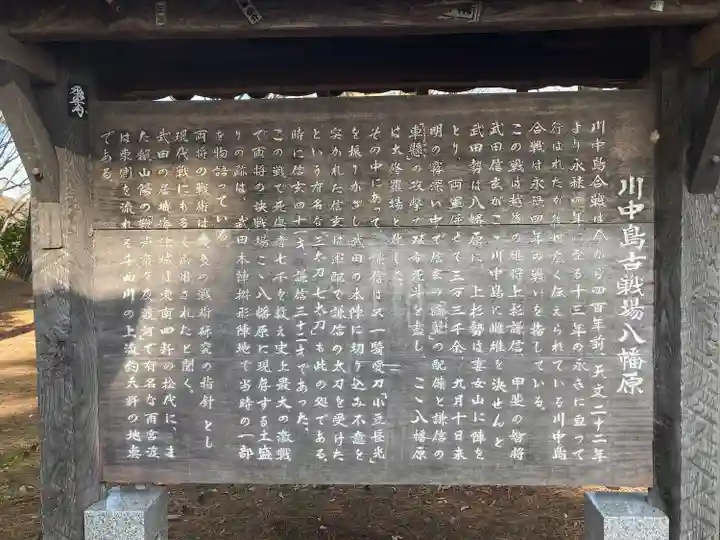 川中島古戦場八幡原
川中島合戦は今から四百年前、天文二十二年
より永禄四年に至る十三年の永きに亘って
行はれたが年に広く伝えられている川中島
合戦は永禄四年の戦いを指している。
この戦は越後の雄将上杉謙信、甲斐の智将
武田信玄がこゝ川中島に雌雄を決せんと
武田勢は八幡原に、上杉勢は妻女山に陣を
とり、両軍併せて三万三千余、九月十日未
明の霧深い中で信玄の「鶴翼」の配備と謙信の
車懸の攻撃が双方死斗を盡し、こゝ八幡原
は大修羅場と化した。
その中にあって、謙信は只一騎愛刀「小豆長光」
を振りかざし武田の本陣に切り込み不意を
突かれた信玄は軍配で謙信の太刀を受けた
という有名な三太刀七太刀も此の処である。
時に信玄四十一才、謙信三十二才であった。
この戦で死傷者七千を数え史上最大の激戦
で両将の決戦場こゝ八幡原に現存する土盛
りの跡は、武田本陣桝形陣地で当時の一部
を物語っている。
両将の戦術は幾多の戦術研究の指針とし
現代戦にもよく応用されたと聞く。
武田の居城海津城は東南四粁の松代に、ま
た頼山陽の鞭声粛々夜渡河で有名な雨宮渡
は東側を流れる千曲川の上流約六粁の地点
である。